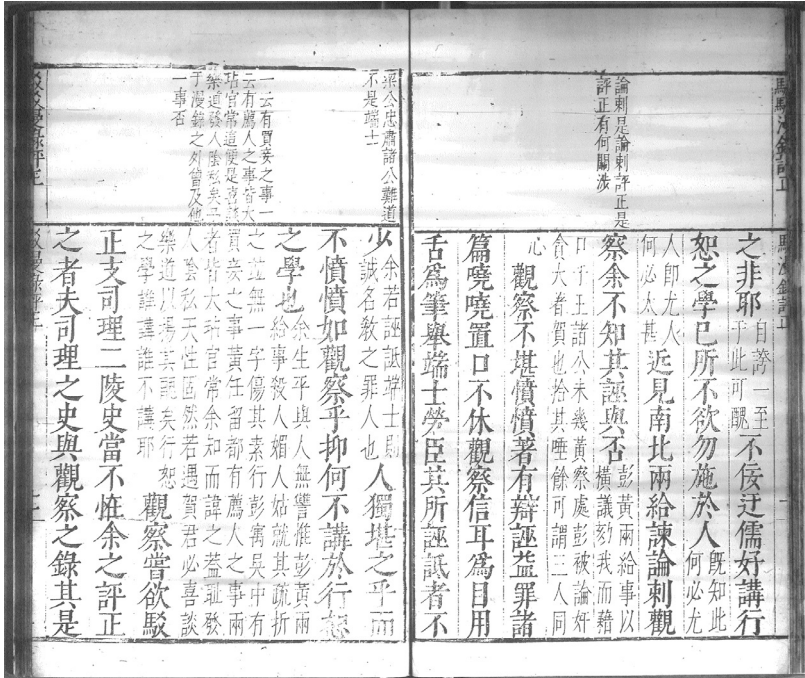 駁駁漫錄評正
論剌是論剌評正是
評正有何關涉
之非耶
自誇一至
于此可醜
不佞迂儒好講行
恕之學己所不欲勿施於人
既知此
何必尤
人卽尤人
何必太甚
近見南北兩給諫論剌觀
察余不知其誣與否
彭黃兩給事以
橫議劾我而藉
口于王諸公未幾黃察處彭被論奸
貪大者賀也拾其唾餘可謂二人同
心
觀察不堪憤憤著有辯誣益罪諸
篇嘵嘵置口不休觀察信耳為目用
舌為筆舉端士勞臣其所誣詆者不
梁公忠肅諸公難道
不是端士
一云有買妾之事一
云有薦人之事皆大
玷官常這便是喜談
樂道發人陰私矣子
于漫錄之外曾及他
一事否
少
余若誣詆端士則
誠名教之罪人也
人獨堪之乎而
不憤憤如觀察乎抑何不講於行恕
之學也
余生平與人無讐惟彭黃兩
給事殺人媚人姑就其疏折
之並無一字傷其素行彭寓吳中有
買妾之事黃任留都有薦人之事兩
者皆大玷官常余知而諱之蓋耻發
人陰私天性固然若遇賀君必喜談
樂道以揚其醜矣行恕
之學誰講誰不講耶
觀察嘗欲駁
正支可理二陵史當不恠余之評正
之者夫可理之史與觀察之錄其是